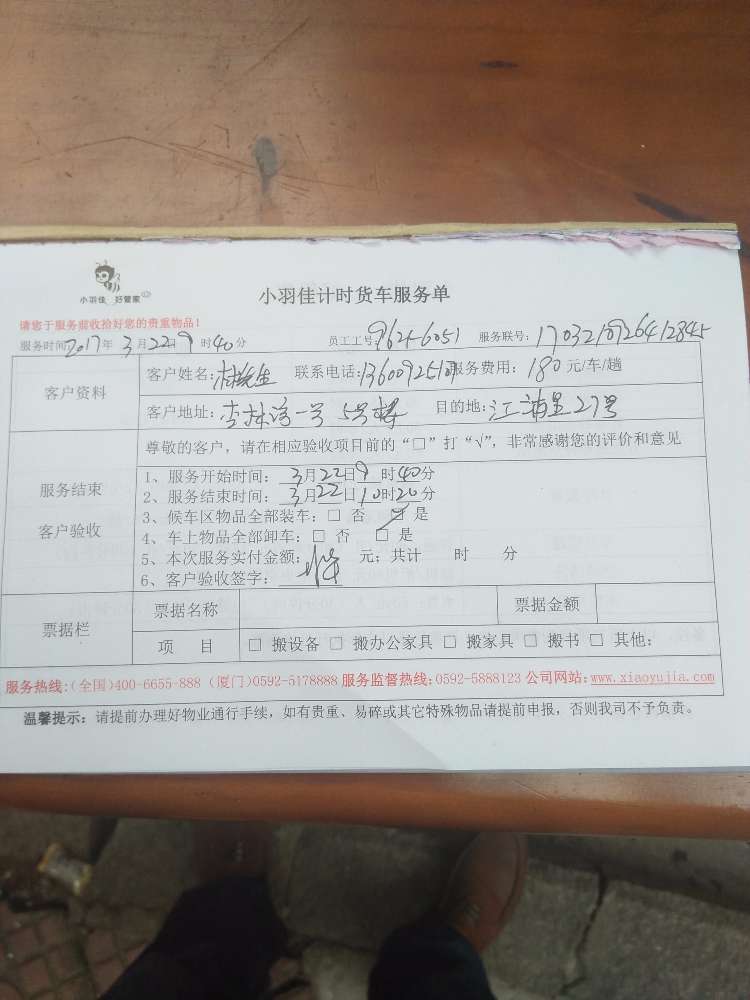 小羽佳 好管家
小羽佳计时货车服务单
请您于服务前收拾好您的贵重物品!
服务时间2017年3月22日9时40分 员工工号: 962-6051 服务联号: 1703210926412845
客户资料
客户姓名: 林先生 联系电话: 服务费用: 180元/车/趟
客户地址: 杏林湾一号 5号楼 目的地: 江浦里27号
服务结束
客户验收
尊敬的客户，请在相应验收项目前的“□”打“√”，非常感谢您的评价和意见
1、服务开始时间: 3月22日9时40分
2、服务结束时间: 3月22日10时20分
3、候车区物品全部装车: □ 否 ☑ 是
4、车上物品全部卸车: □ 否 □ 是
5、本次服务实付金额: 元; 共计 时 分
6、客户验收签字:
票据栏
票据名称 票据金额
项 目 □ 搬设备 □ 搬办公家具 □ 搬家具 □ 搬书 □ 其他:
服务热线:(全国)400-6655-888 (厦门)0592-5178888 服务监督热线: 0592-5888123 公司网站: www.xiaoyujia.com
温馨提示: 请提前办理好物业通行手续，如有贵重、易碎或其它特殊物品请提前申报，否则我司不予负责。